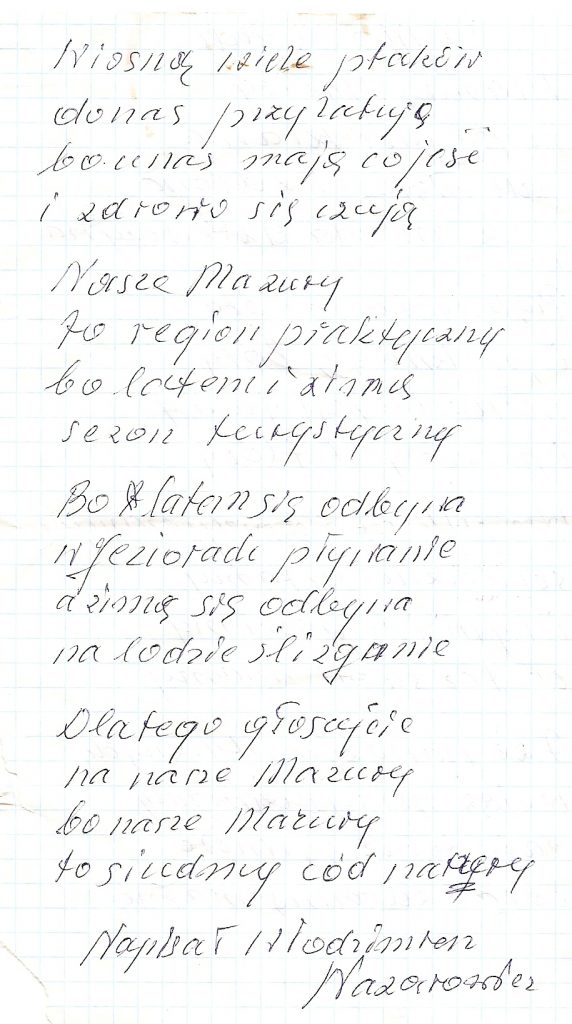 Wiosną wiele ptaków
donas przylatują
bo unas mają cojeść
i zdrowo się czują
Nasze Mazury
to region praktyczny
bo latem i zimą
sezon turystyczny
Bo latem się odbywa
w jeziorach pływanie
a zimą się odbywa
na lodzie ślizganie
Dlatego głosujcie
na nasze Mazury
bo nasze Mazury
to siudmy cód natury
Napisał Włodzimierz